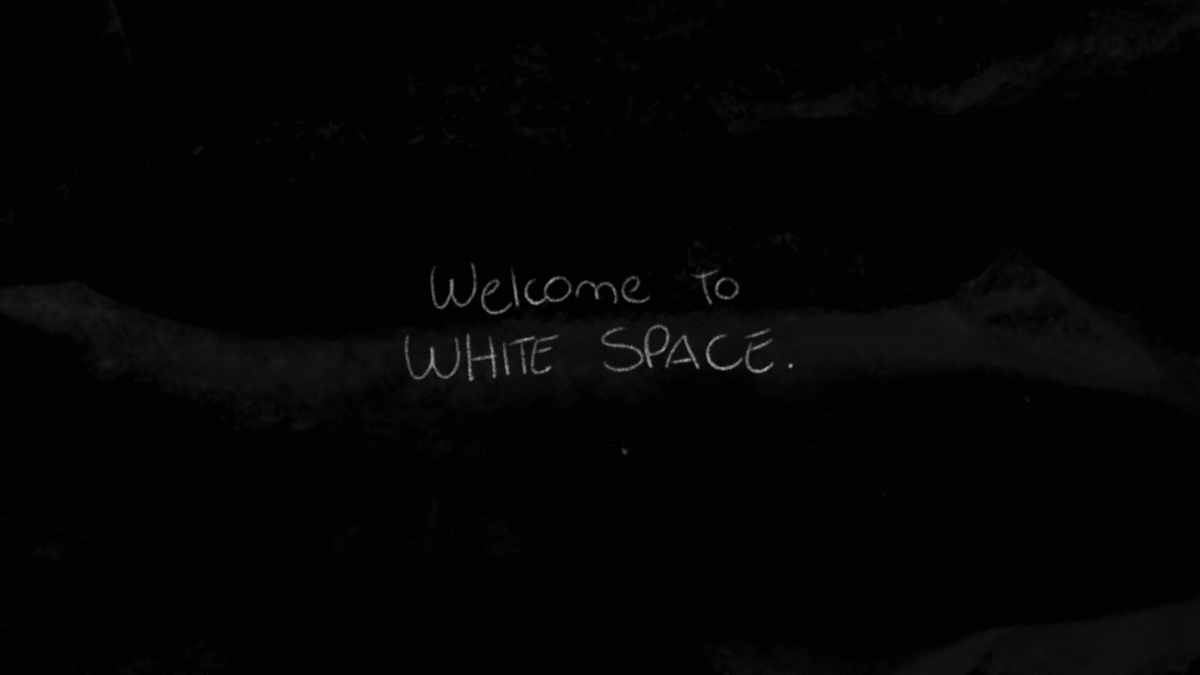 Welcome To
WHITE SPACE.